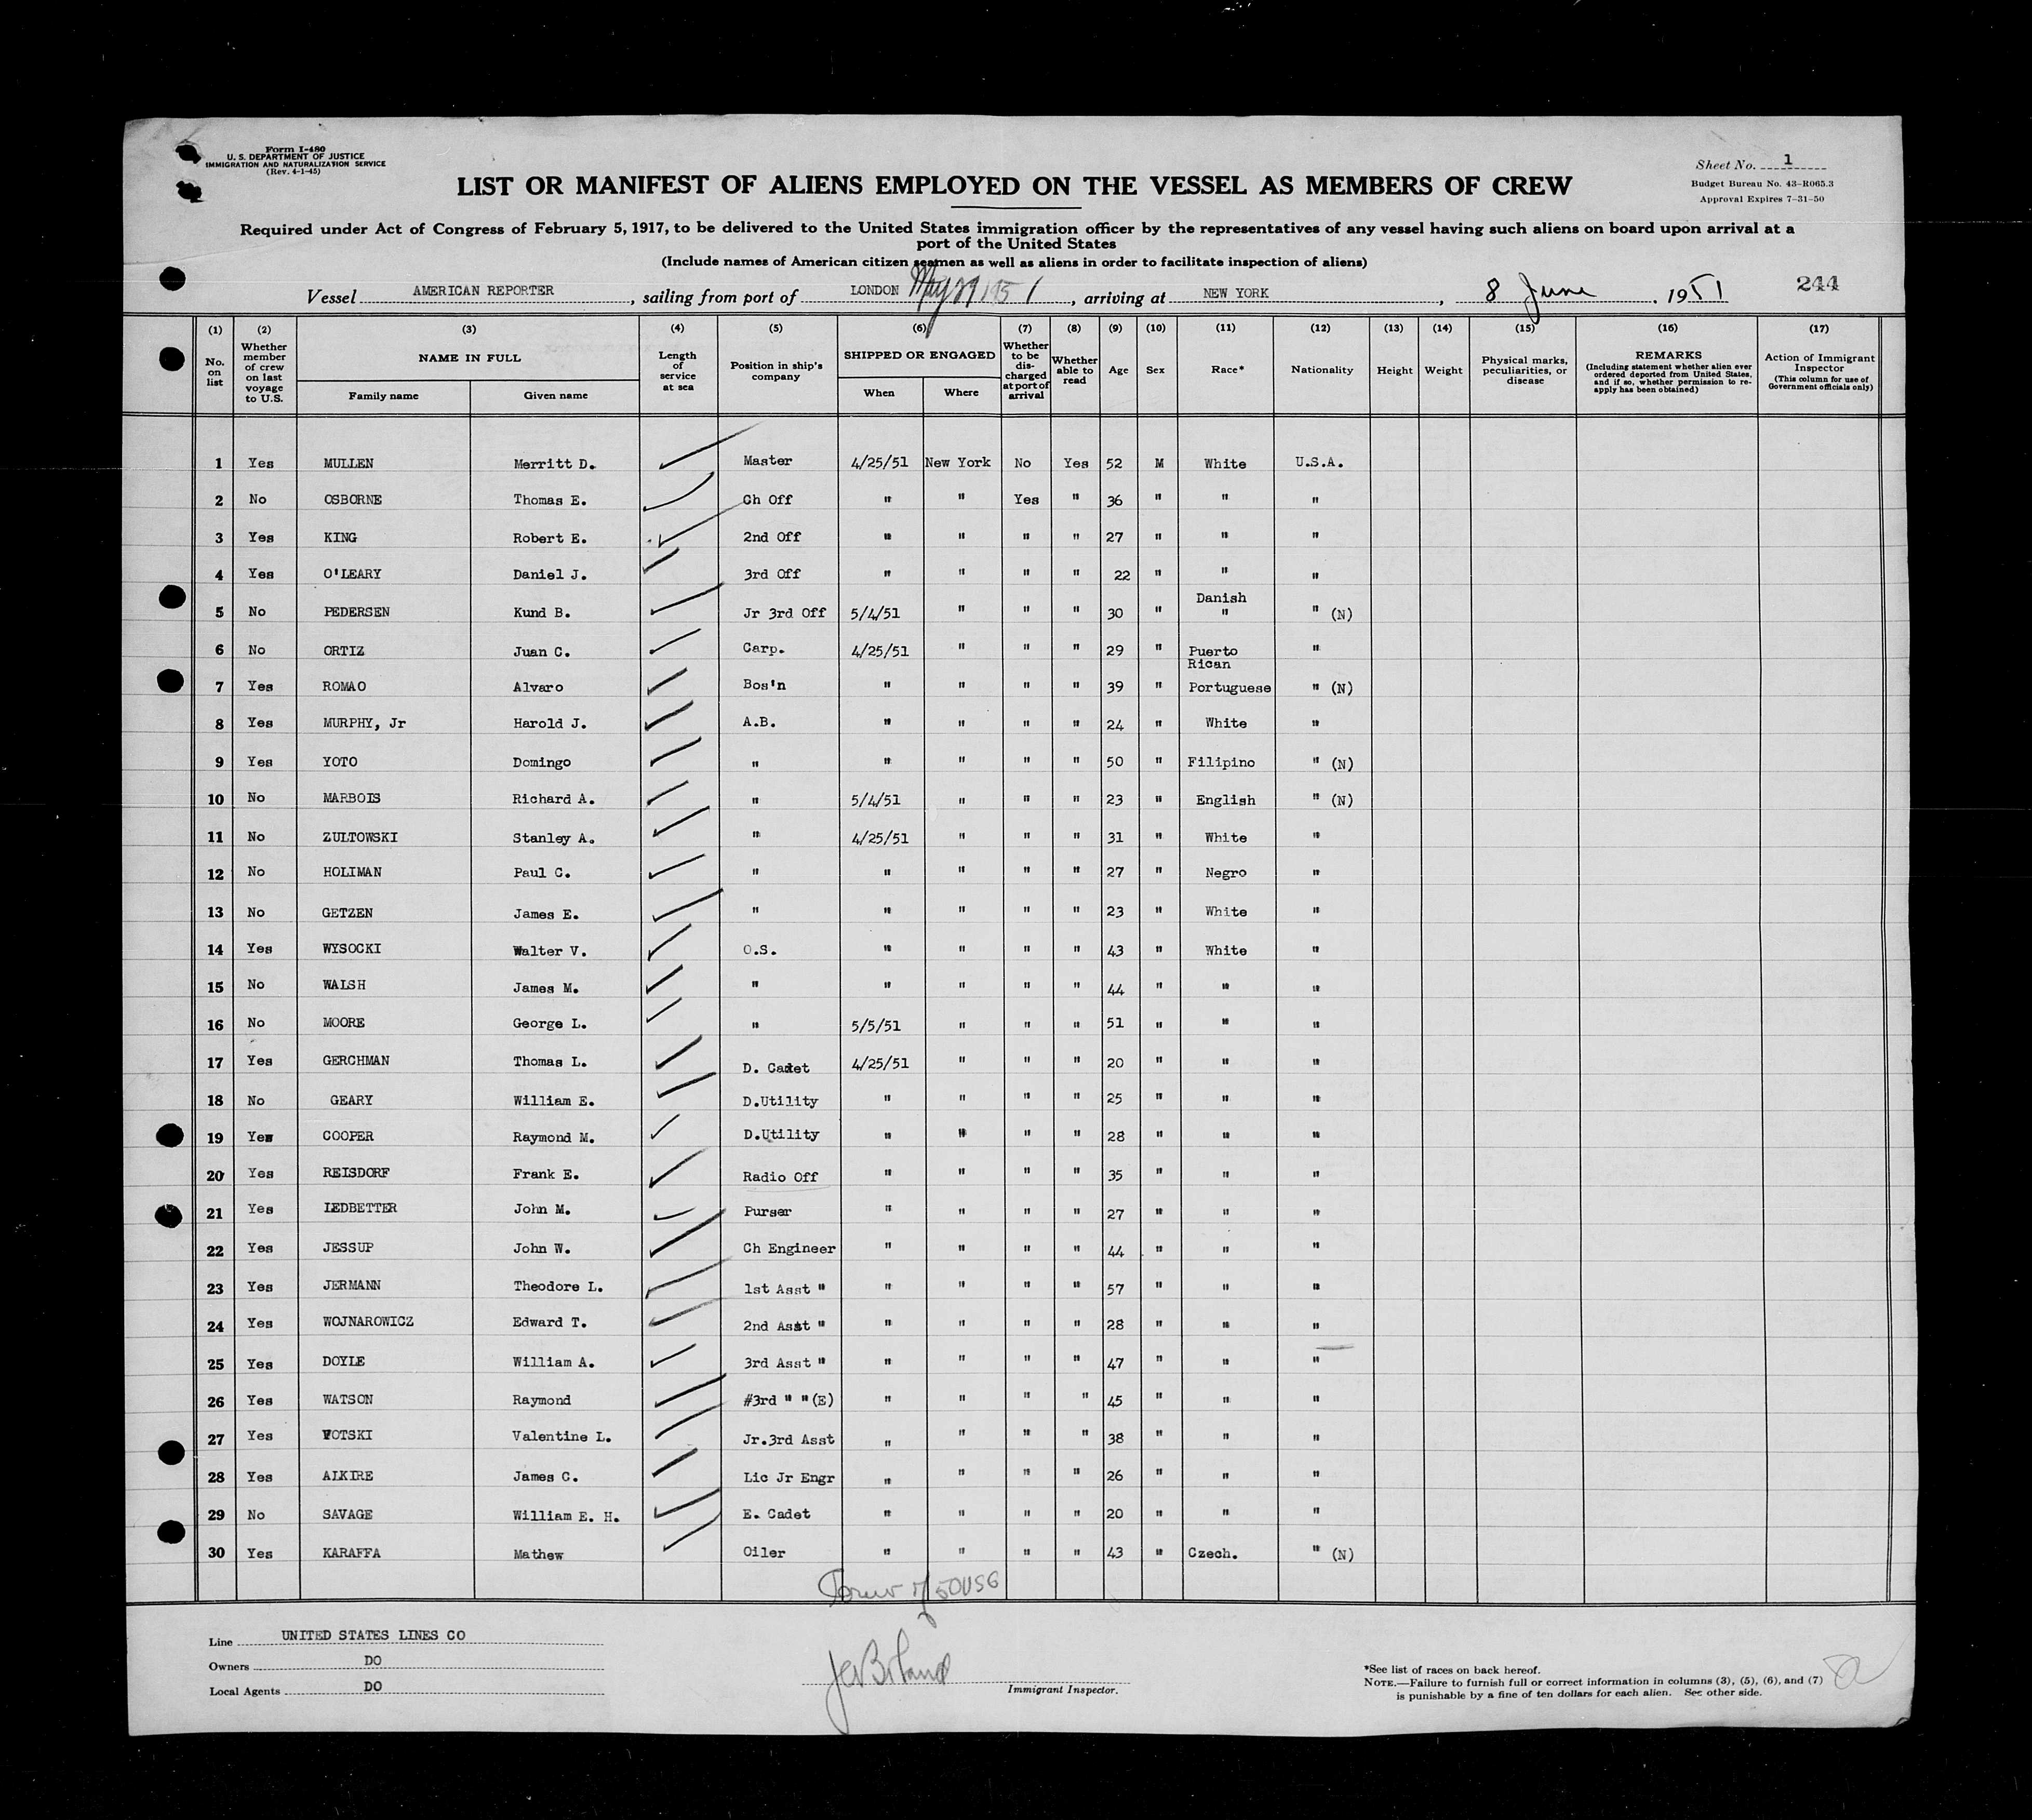 Form I-480
U. S. DEPARTMENT OF JUSTICE
IMMIGRATION AND NATURALIZATION SERVICE
(Rev. 4-1-45)
Sheet No. 1
Budget Bureau No. 43-R065.3
Approval Expires 7-31-50
LIST OR MANIFEST OF ALIENS EMPLOYED ON THE VESSEL AS MEMBERS OF CREW
Required under Act of Congress of February 5, 1917, to be delivered to the United States immigration officer by the representatives of any vessel having such aliens on board upon arrival at a
port of the United States
(Include names of American citizen seamen as well as aliens in order to facilitate inspection of aliens)
Vessel AMERICAN REPORTER, sailing from port of LONDON May 29 1951, arriving at NEW YORK, 8 June, 1951 244
(1) (2) (3) (4) (5) (6) (7) (8) (9) (10) (11) (12) (13) (14) (15) (16) (17)
No. on list
Whether member of crew on last voyage to U.S.
NAME IN FULL
Family name
Given name
Length of service at sea
Position in ship's company
SHIPPED OR ENGAGED
When
Where
Whether to be discharged at port of arrival
Whether able to read
Age
Sex
Race*
Nationality
Height
Weight
Physical marks, peculiarities, or disease
REMARKS
(Including statement whether alien ever ordered deported from United States, and if so, whether permission to re-apply has been obtained)
Action of Immigrant Inspector
(This column for use of Government officials only)
1 Yes MULLEN Merritt D. Master 4/25/51 New York No Yes 52 M White U.S.A.
2 No OSBORNE Thomas E. Ch Off " " Yes " 36 " " "
3 Yes KING Robert E. 2nd Off " " " " 27 " " "
4 Yes O'LEARY Daniel J. 3rd Off " " " " 22 " " "
5 No PEDERSEN Kund B. Jr 3rd Off 5/4/51 " " " 30 " Danish " " (N)
6 No ORTIZ Juan C. Carp. 4/25/51 " " " 29 " Puerto Rican "
7 Yes ROMAO Alvaro Bos'n " " " " 39 " Portuguese " (N)
8 Yes MURPHY, Jr Harold J. A.B. " " " " 24 " White "
9 Yes YOTO Domingo " " " " " 50 " Filipino " (N)
10 No MARBOIS Richard A. " 5/4/51 " " " 23 " English " (N)
11 No ZULTOWSKI Stanley A. " 4/25/51 " " " 31 " White "
12 No HOLIMAN Paul C. " " " " " 27 " Negro "
13 No GETZEN James E. " " " " " 23 " White "
14 Yes WYSOCKI Walter V. O.S. " " " " 43 " White "
15 No WALSH James M. " " " " " 44 " " "
16 No MOORE George L. " 5/5/51 " " " 51 " " "
17 Yes GERCHMAN Thomas L. D. Cadet 4/25/51 " " " 20 " " "
18 No GEARY William E. D.Utility " " " " 25 " " "
19 Yes COOPER Raymond M. D.Utility " " " " 28 " " "
20 Yes REISDORF Frank E. Radio Off " " " " 35 " " "
21 Yes LEDBETTER John M. Purser " " " " 27 " " "
22 Yes JESSUP John W. Ch Engineer " " " " 44 " " "
23 Yes JERMANN Theodore L. 1st Asst " " " " " 57 " " "
24 Yes WOJNAROWICZ Edward T. 2nd Asst " " " " " 28 " " "
25 Yes DOYLE William A. 3rd Asst " " " " " 47 " " "
26 Yes WATSON Raymond #3rd " " (E) " " " " 45 " " "
27 Yes Valentine L. Jr.3rd Asst " " " " 38 " " "
28 Yes ALKIRE James C. Lic Jr Engr " " " " 26 " " "
29 No SAVAGE William E. H. E. Cadet " " " " 20 " " "
30 Yes KARAFFA Mathew Oiler " " " " 43 " Czech. " (N)
Crew of 50 USC
Line UNITED STATES LINES CO
Owners DO
Local Agents DO
Immigrant Inspector.
*See list of races on back hereof.
NOTE.—Failure to furnish full or correct information in columns (3), (5), (6), and (7)
is punishable by a fine of ten dollars for each alien. See other side.